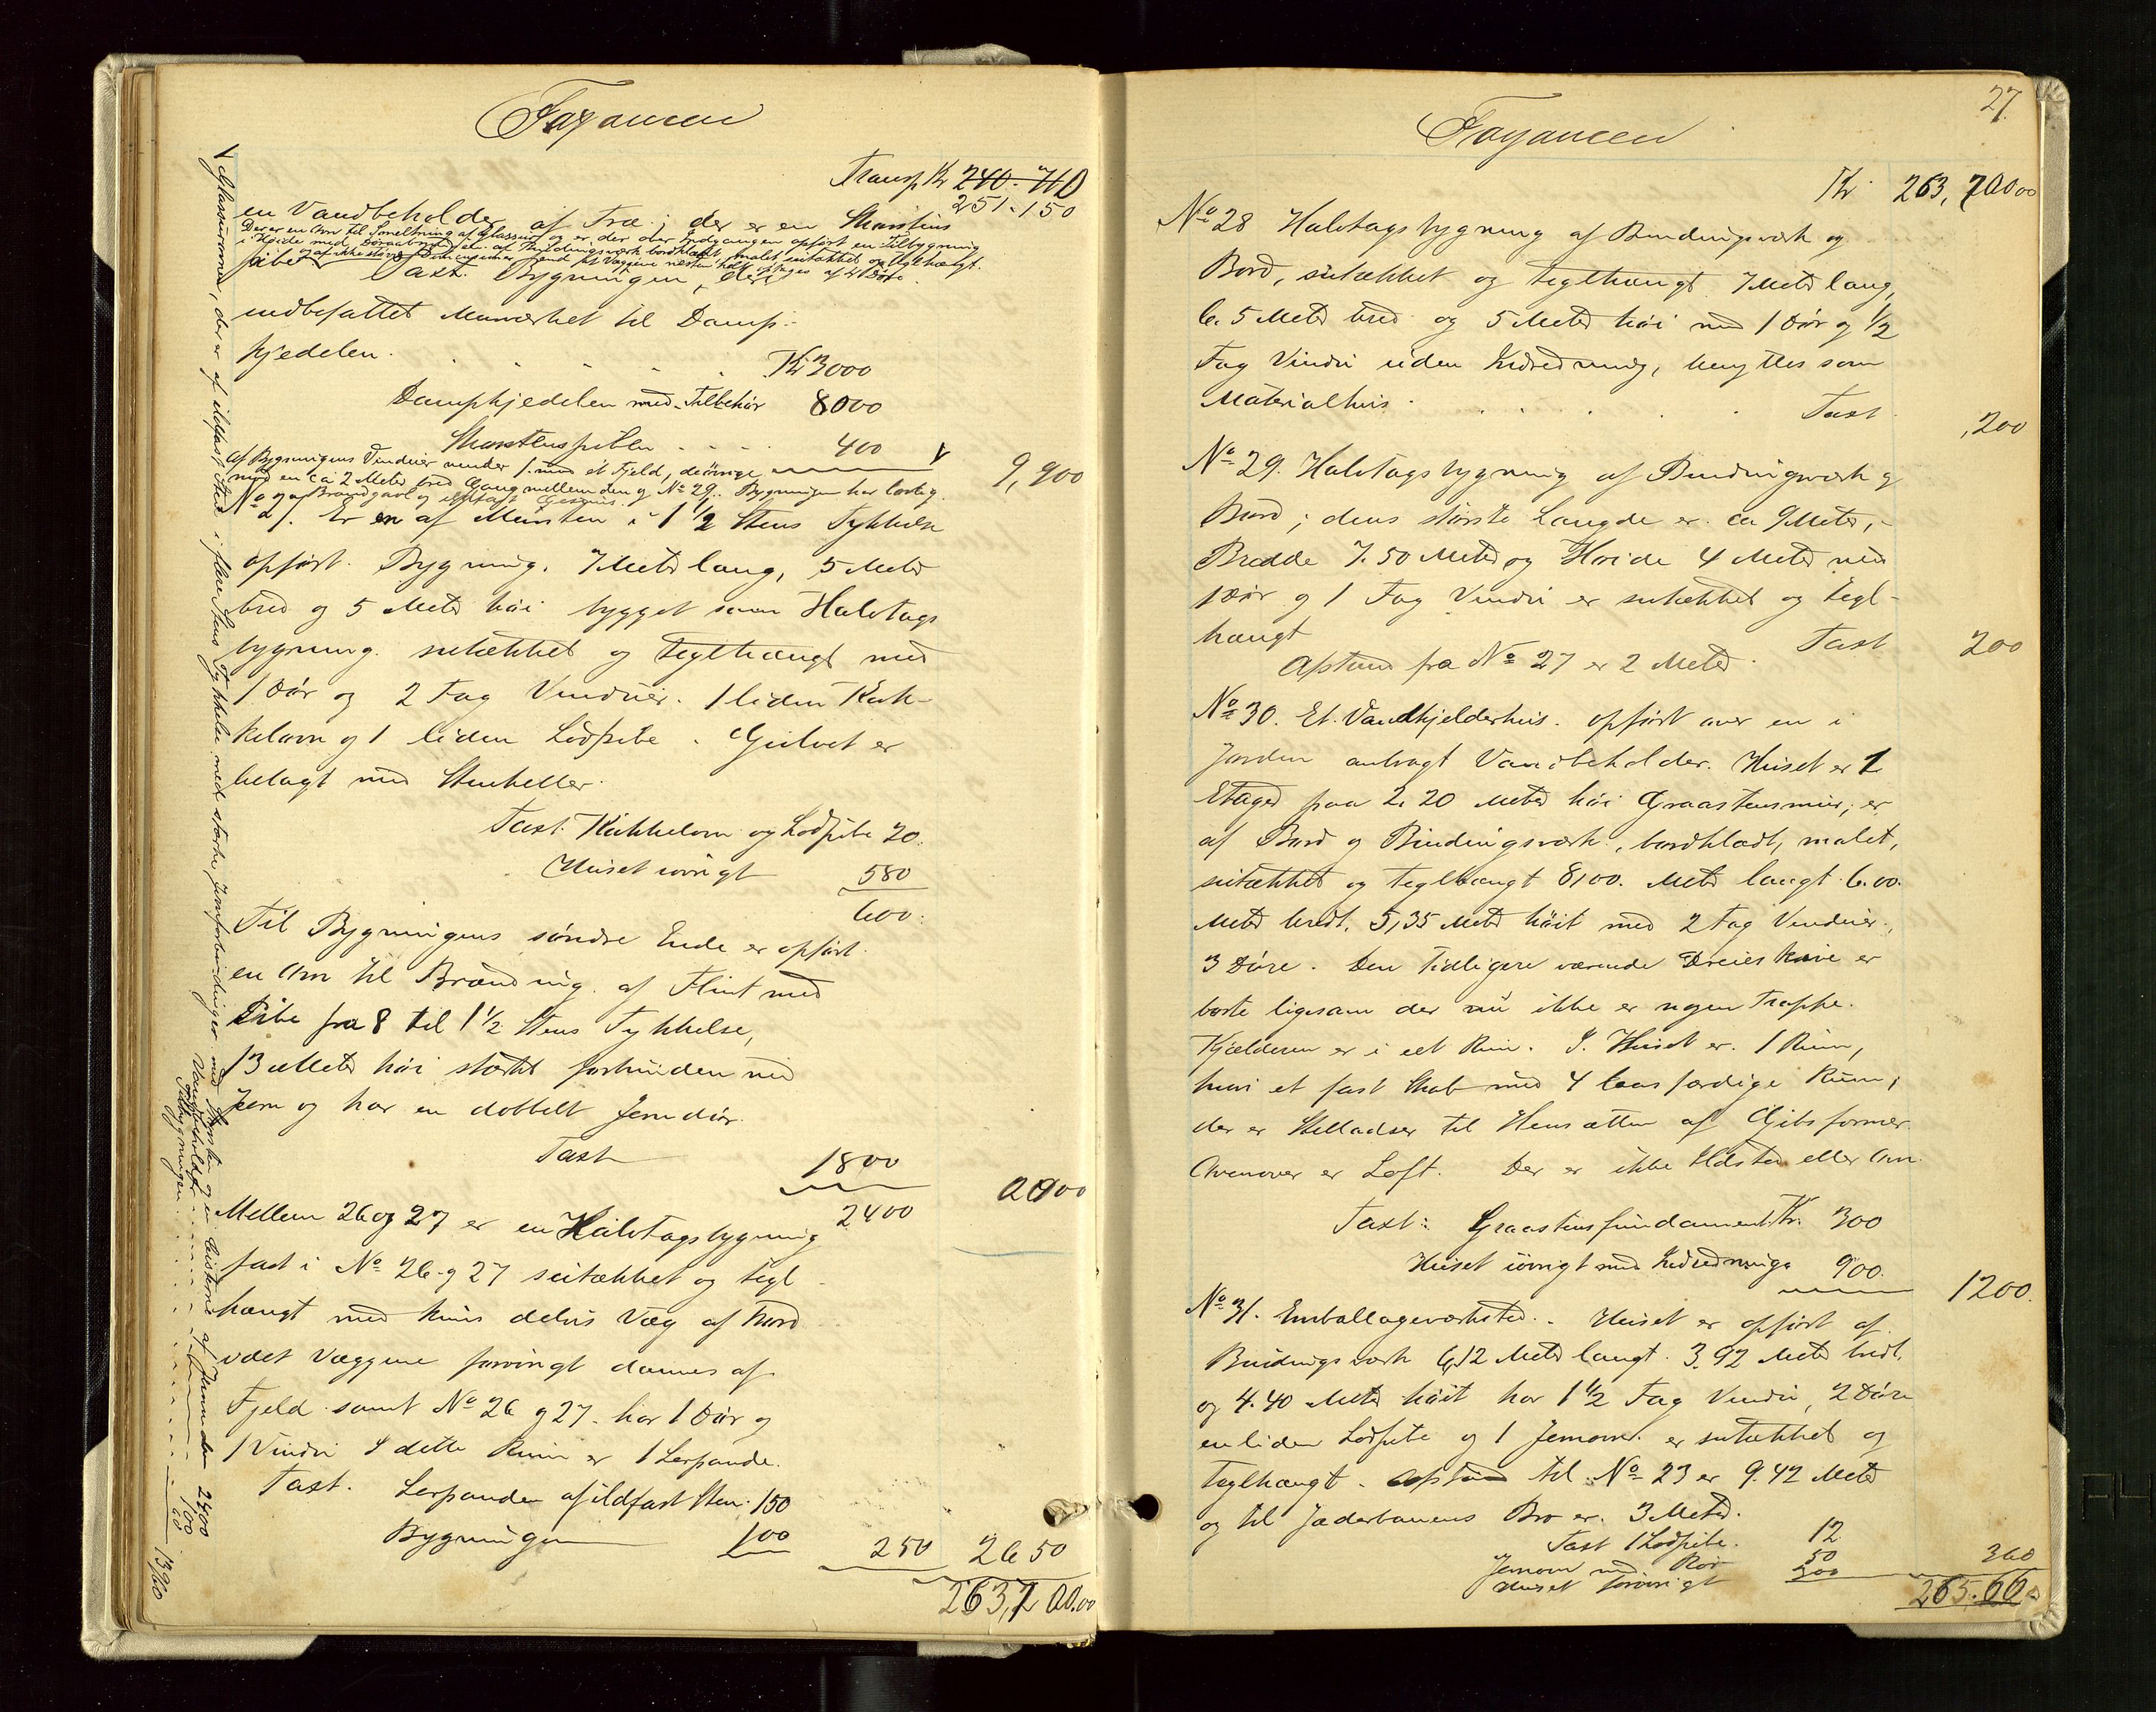 Fayancen
Transp Kr 240.710
251.150
en Vandbeholder af Træ; der er en Skorstens
Der er en Ovn til Smeltning af Glassur og er der over Indgangen opført en Tilbygning
i Høide med af Bindingsværk bordklædt, malet sutækket og teglhængt.
pibe
Taxt. Bygningen,
indbefattet Murværket til Damp-
kjedelen. Kr 3000
Dampkjedelen med Tilbehør 8000
Skorstenspiben 400
9,900
Af Bygningens Vinduer vender 1 mod et Fjeld, de øvrige
mod en ca 2 Meter bred Gang mellem den og No 29. Bygningen har
Brandgavl og ildfast Gesims.
No 27. Er en af Mursten i 1 1/2 Stens Tykkelse
opført Bygning, 7 Meter lang, 5 Meter
bred og 5 Meter høi bygget som Halvtags
bygning sutækket og teglhængt med
1 Dør og 2 Fag Vinduer. 1 liden Kak-
kelovn og 1 liden Lodpibe. Gulvet er
belagt med Stenheller.
Taxt: Kakkelovn og Lodpibe 20.
Huset iøvrigt 580
600.
Til Bygningens søndre Ende er opført
en Ovn til Brænding af Flint med
Pibe fra 8 til 1 1/2 Stens Tykkelse,
13 Meter høi stærkt forbunden med
Jern og har en dobbelt Jerndør.
Taxt 1800
2400
Mellem 26 og 27 er en Halvtagsbygning
fast i No 26 og 27 sutækket og tegl
hængt med kuns delvis Væg af Bord
idet Væggene forøvrigt dannes af
Fjeld samt No 26 og 27. har 1 Dør og
1 Vindu I dette Rum er 1 Lerpande.
Taxt. Lerpanden af ildfast Sten 150
Bygningen 100
250 2650
263,700.00
V Glassurovnen, der er af ildfast Sten i flere Stens Tykkelse med stærke Jernforbindinger med Skorsten og en Cisterne af Jern
Vandbeholder 100
Tilbygningen
27.
Fayancen
Kr 263,700.00
No 28 Halvtagsbygning af Bindingsværk og
Bord, sutækket og teglhængt 7 Meter lang,
5 Meter bred og 5 Meter høi med 1 Dør og 1/2
Fag Vindu uden Indredning, benyttes som
Materialhus. Taxt
200
No 29. Halvtagsbygning af Bindingværk og
Bord; dens største Længde er ca 9 Meter,
Bredde 7.50 Meter og Høide 4 Meter med
1 Dør og 1 Fag Vindu er sutækket og tegl-
hængt Taxt 200
Afstand fra No 27 er 2 Meter.
No 30. Et Vandkjelderhus. opført over en i
Jorden anbragt Vandbeholder. Huset er 1
Etages paa 2.20 Meter høi Graastensmur; er
af Bord og Bindingsværk, bordklædt, malet,
sutækket og teglhængt 8,00. Meter langt 6.00.
Meter bredt. 5,35 Meter høit med 2 Fag Vinduer,
3 Døre. Den tidligere værende Dreieskive er
borte ligesom der nu ikke er nogen Trappe.
Kjælderen er i eet Rum. I Huset er 1 Rum,
hvori et fast Skab med 4 laasfærdige Rum;
der er Stelladser til Hensætten af Gibsformer.
Ovenover er Loft. Der er ikke Ildsted eller Ovn.
Taxt: Graastensfundament Kr. 300
Huset iøvrigt med Indredninga 900.
1200.
No 31. Emballageværksted. Huset er opført af
Bindingsværk 6,12 Meter langt 3.92 Meter bredt.
og 4.40 Meter høit har 1 1/2 Fag Vindu, 2 Døre
en liden Lodpibe og 1 Jernovn. er sutækket og
teglhængt. Afstand til No 23 er 9.42 Meter
og til Jæderbanens Bro er 3 Meter.
Taxt 1 Lodpibe. 12
Jernovn med Rør 50
Huset forøvrigt 300
360
265.660